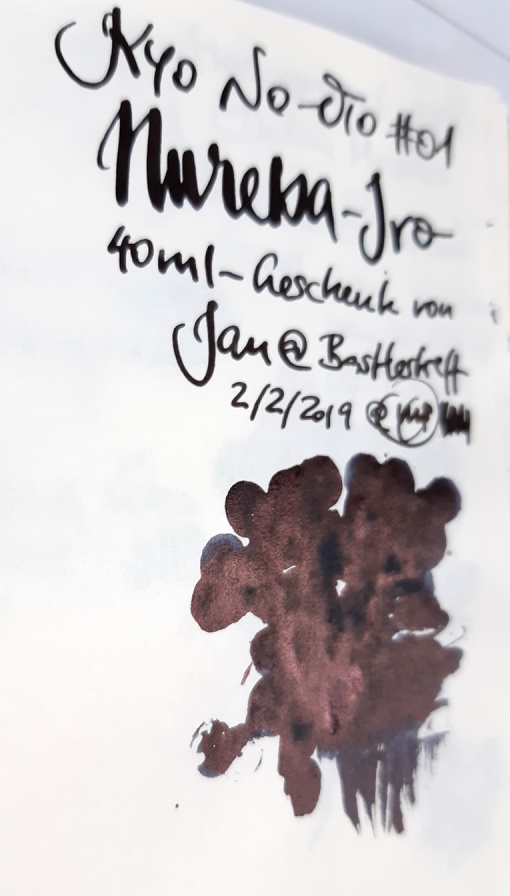 Kyo No-Oto #01
Nureba-Iro
40ml-Geschenk von
Jan @ Bastlertreff
2/2/2019 @